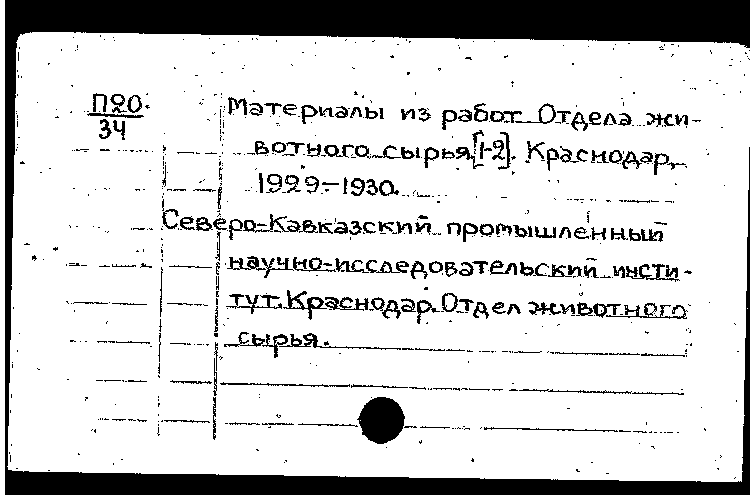 П20.
34
Материалы из работ Отдела жи-
вотного сырья,[1-2]. Краснодар,
1929-1930.
Северо-Кавказский промышленный
научно-исследовательский инсти-
тут. Краснодар. Отдел животного
сырья.